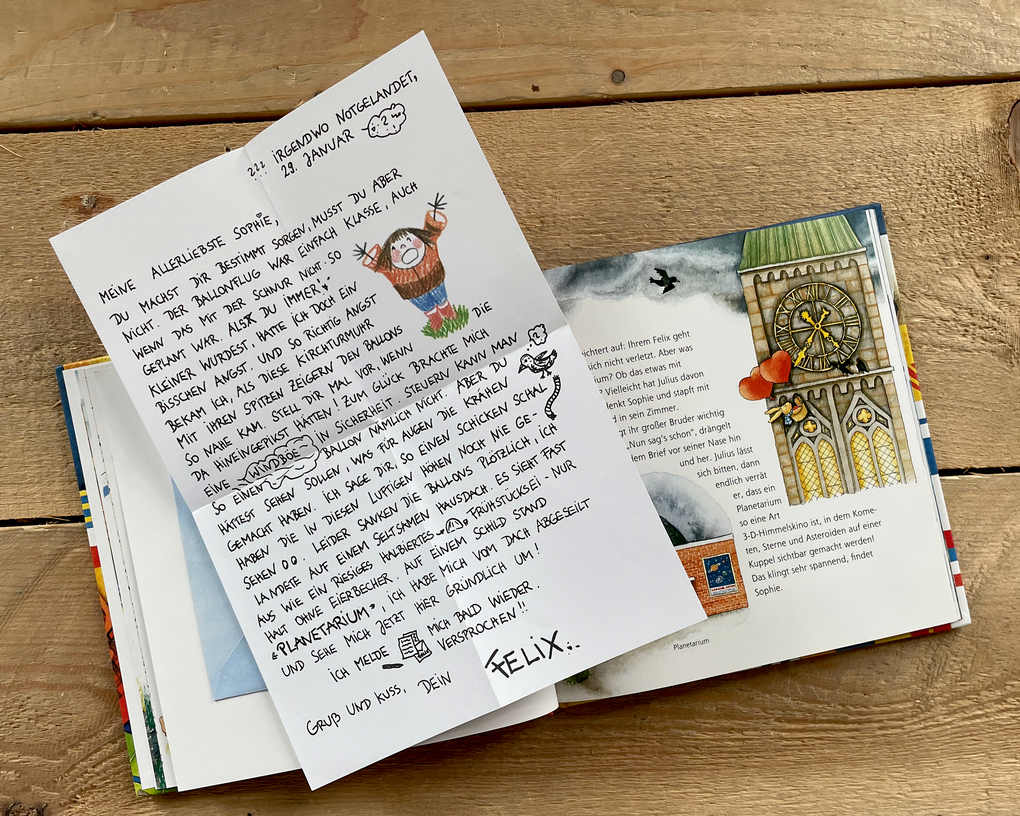 ??? IRGENDWO NOTGELANDET,
29. JANUAR
MEINE ALLERLIEBSTE SOPHIE,
DU MACHST DIR BESTIMMT SORGEN, MUSST DU ABER
NICHT. DER BALLONFLUG WAR EINFACH KLASSE, AUCH
WENN DAS MIT DER SCHNUR NICHT SO
GEPLANT WAR. ALS DU IMMER
KLEINER WURDEST HATTE ICH DOCH EIN
BISSCHEN ANGST. UND SO RICHTIG ANGST
BEKAM ICH, ALS DIESE KIRCHTURMUHR
MIT IHREN SPITZEN ZEIGERN DEN BALLONS
SO NAHE KAM. STELL DIR MAL VOR, WENN DIE
DA HINEINGEPIKST HÄTTEN! ZUM GLÜCK BRACHTE MICH
EINE WINDBÖE IN SICHERHEIT. STEUERN KANN MAN
SO EINEN BALLON NÄMLICH NICHT. ABER DU
HÄTTEST SEHEN SOLLEN, WAS FÜR AUGEN DIE KRÄHEN
GEMACHT HABEN. ICH SAGE DIR, SO EINEN SCHICKEN SCHAL
HABEN DIE IN DIESEN LUFTIGEN HÖHEN NOCH NIE GE-
SEHEN. LEIDER SANKEN DIE BALLONS PLÖTZLICH, ICH
LANDETE AUF EINEM SELTSAMEN HAUSDACH. ES SIEHT FAST
AUS WIE EIN RIESIGES HALBIERTES FRÜHSTÜCKSEI - NUR
HALT OHNE EIERBECHER. AUF EINEM SCHILD STAND
"PLANETARIUM", ICH HABE MICH VOM DACH ABGESEILT
UND SEHE MICH JETZT HIER GRÜNDLICH UM!
ICH MELDE MICH BALD WIEDER.
VERSPROCHEN!!
GRUß UND KUSS, DEIN FELIX
ichtert auf: Ihrem Felix geht
ich nicht verletzt. Aber was
ium? Ob das etwas mit
? Vielleicht hat Julius davon
denkt Sophie und stapft mit
in sein Zimmer.
gt ihr großer Bruder wichtig
„Nun sag's schon", drängelt
dem Brief vor seiner Nase hin
und her. Julius lässt
sich bitten, dann
endlich verrät
er, dass ein
Planetarium
so eine Art
3-D-Himmelskino ist, in dem Kome-
ten, Sterne und Asteroiden auf einer
Kuppel sichtbar gemacht werden!
Das klingt sehr spannend, findet
Sophie.
Planetarium